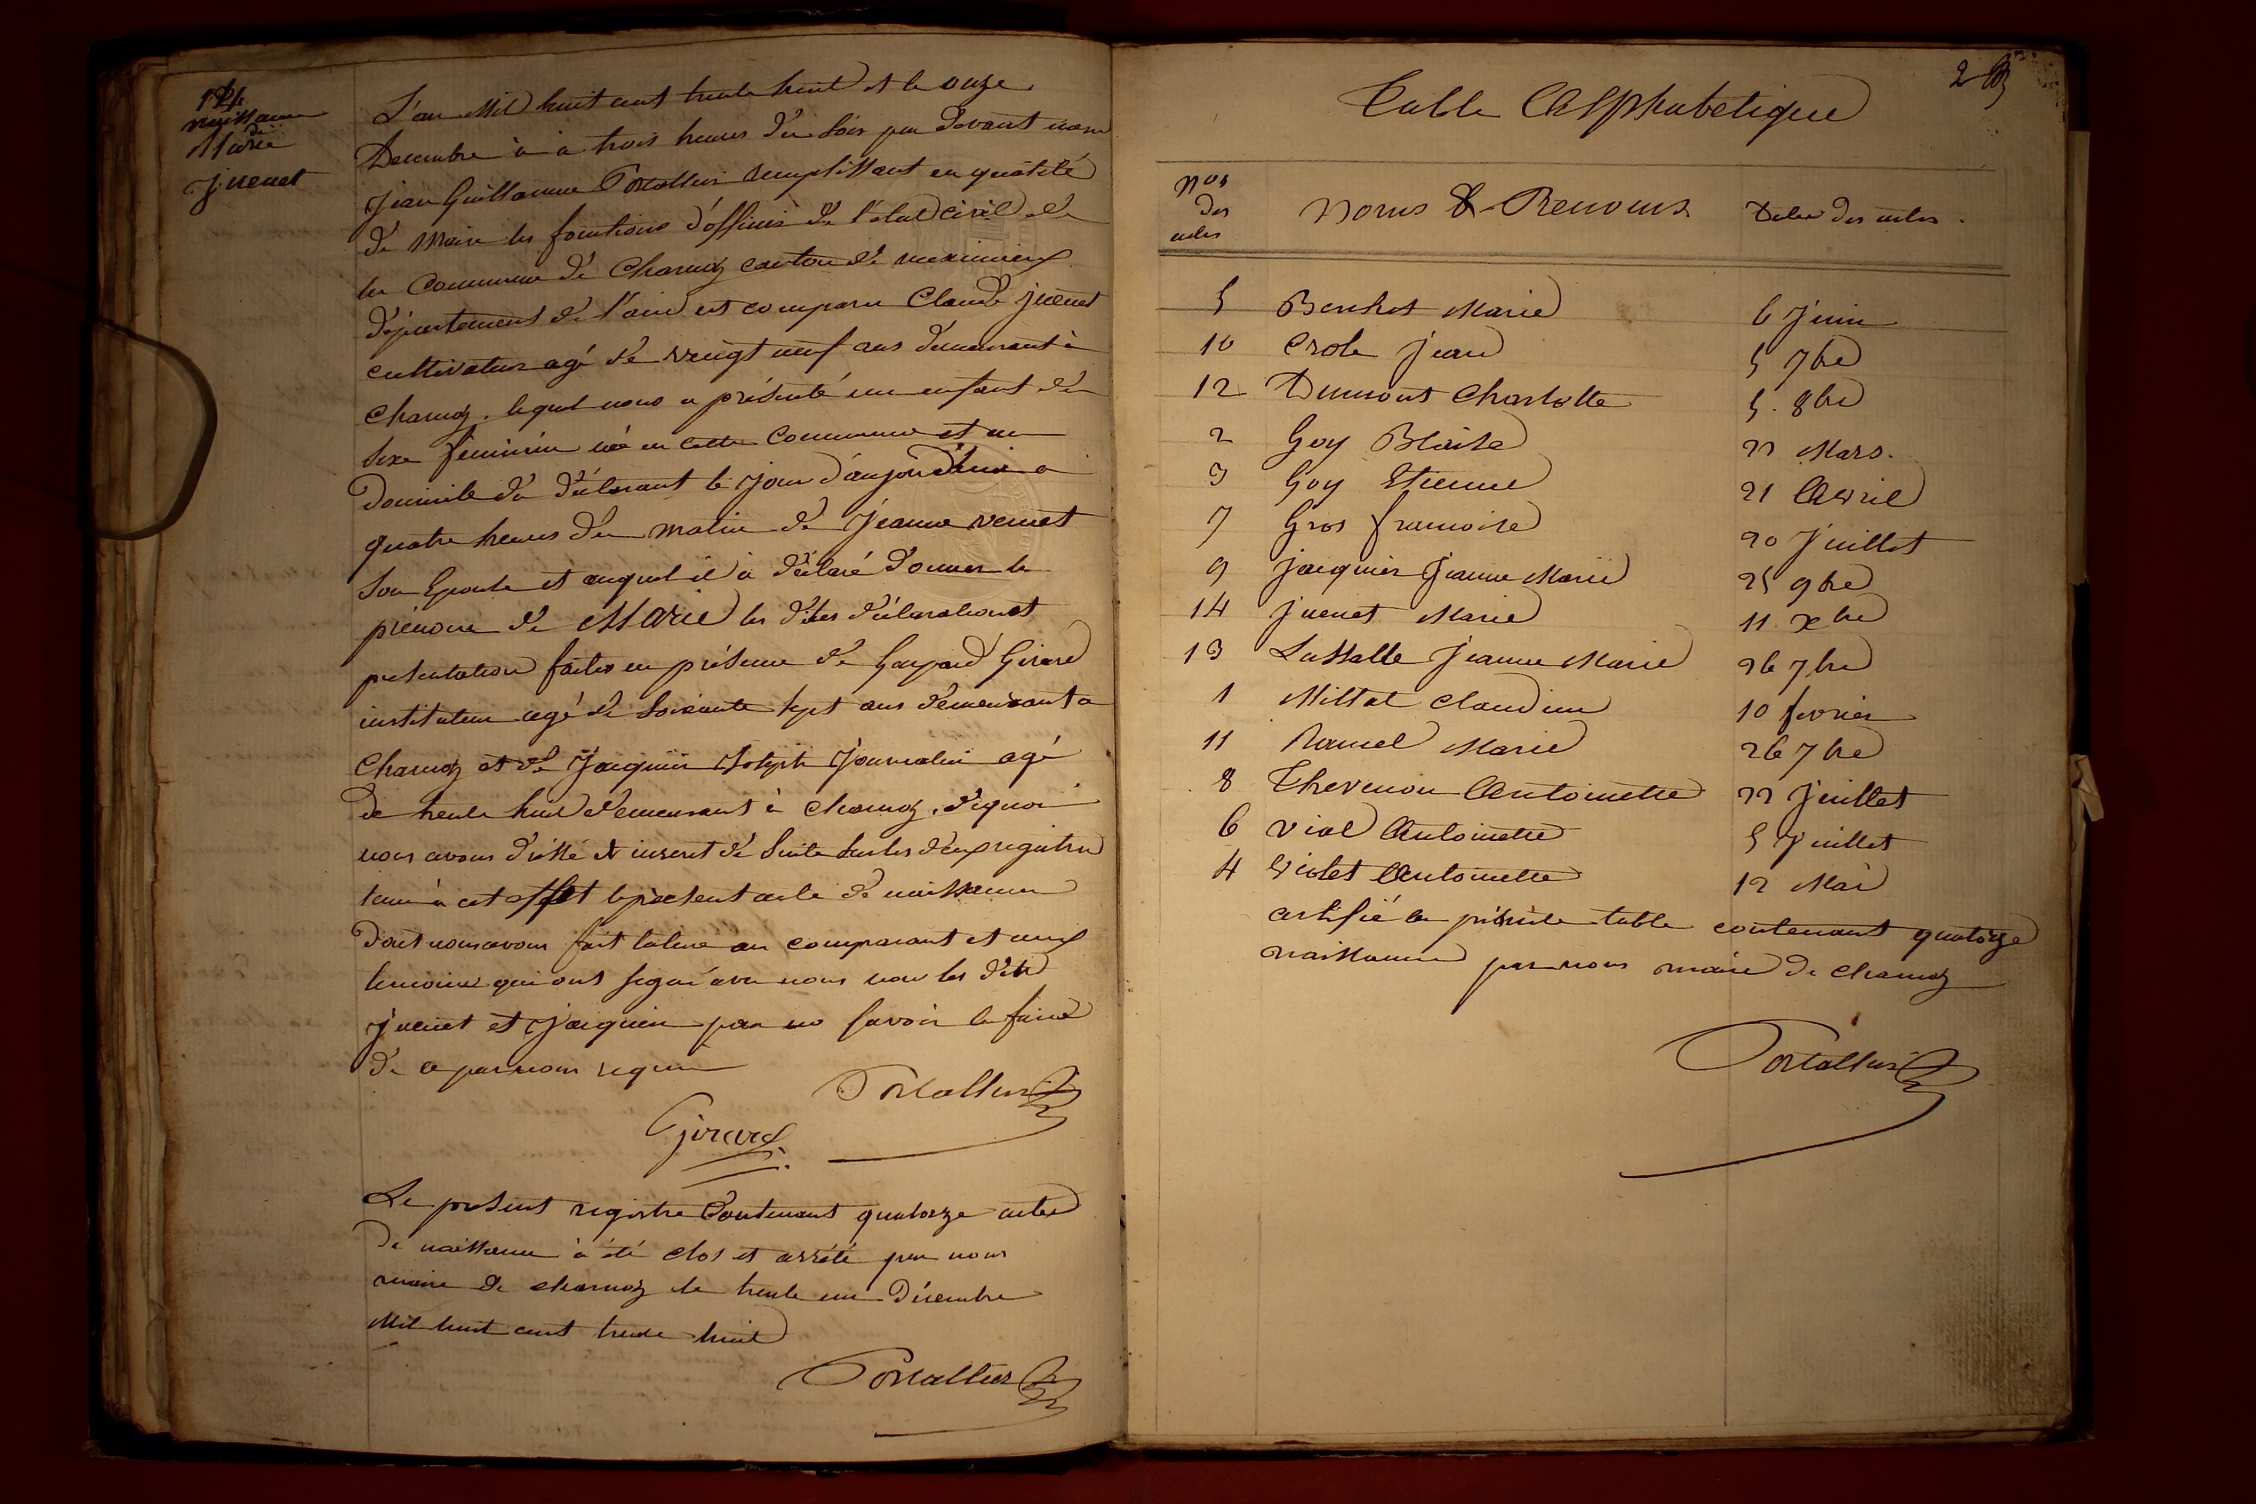 14
naissance
de
Marie
juenet
L'an Mil huit cent trente huit et le onze
Decembre à à trois heures du soir par devant nous
Jean Guillaume Portallier remplissant en qualité
de Maire les fonctions d'officier de l'état civil de
la Commune de Charnoz canton de meximieux
département de l'ain est comparu Claude juenet
cultivateur agé de vingt neuf ans demeurant à
Charnoz. lequel nous a présenté un enfant du
sexe féminin né en cette commune et au
Domicile du déclarant le jour d'aujourd'hui a
quatre heures du matin de Jeanne venet
son Epouse et auquel il à déclaré donner le
prénom de Marie les dites déclaration et
presentation faites en présence de Gaspard Girard
instituteur agé de soixante sept ans demeurant a
Charnoz et de Jacquin Joseph Journalier agé
de trente huit demeurant à Charnoz. de quoi
nous avons dressé et inscrit de suite sur les deux registre
tenu à cet effet le présent acte de naissance
dont nous avons fait lature au comparant et aux
temoins qui ont signé avec nous non les dits
Juenet et Jacquin pour ne savoir le faire
de ce par nous requis
Portallier
Girard
Le présent registre Contenant quatorze actes
de naissance à été clos et arrété par nous
maire de charnoz le trente un Décembre
Mil huit cent trente huit
Portallier
2
Table Alphabetique
Nos
des
actes
Noms & Prenoms
Dates des actes
5 Marie 6 Juin
10 Crole jean 5 7bre
12 Dumont Charlotte 5. 8bre
2 Goy Blaise 22 Mars.
3 Goy Etienne 21 Avril
7 Gros francoise 20 Juillet
9 jacquin Jeanne Marie 25 9bre
14 juenet Marie 11 xbre
13 Lassalle Jeanne Marie 26 7bre
1 Millat Claudine 10 fevrier
11 Ramel Marie 26 7bre
8 Thevenon Antoinette 22 Juillet
6 vial Antoinette 5 Juillet
4 Violet Antoinette 12 Mai
certifié la présente table contenant quatorze
naissance par nous maire de Charnoz
Portallier